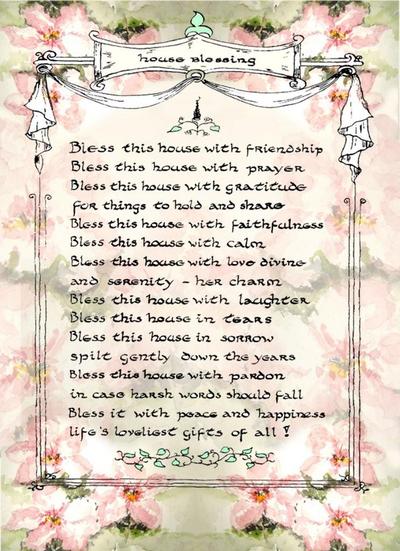 House Blessing
Bless this house with friendship
Bless this house with prayer
Bless this house with gratitude
for things to hold and share
Bless this house with faithfulness
Bless this house with calm
Bless this house with love divine
and serenity - her charm
Bless this house with laughter
Bless this house in tears
Bless this house in sorrow
spilt gently down the years
Bless this house with pardon
in case harsh words should fall
Bless it with peace and happiness
life's loveliest gifts of all!